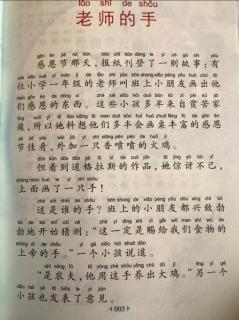 lǎo shī de shǒu
老师的手
感恩节那天，报纸刊登了一则故事：有
位小学一年级的老师叫班上小朋友画出他
们感恩的东西。这些小孩多半来自贫苦家
庭，所以她料想他们多半会画丰富的感恩
节佳肴，外加一只香喷喷的大鸡。
但看到道格拉斯的作品，她惊讶不已，
上面画了一只手！
这是谁的手？班上的小朋友都兴致勃
勃地开始猜测：“这一定是赐给我们食物的
上帝的手。”一个小孩说道。
“是农夫，他用这手养出大鸡。”另一个
小孩也发表了意见。
005